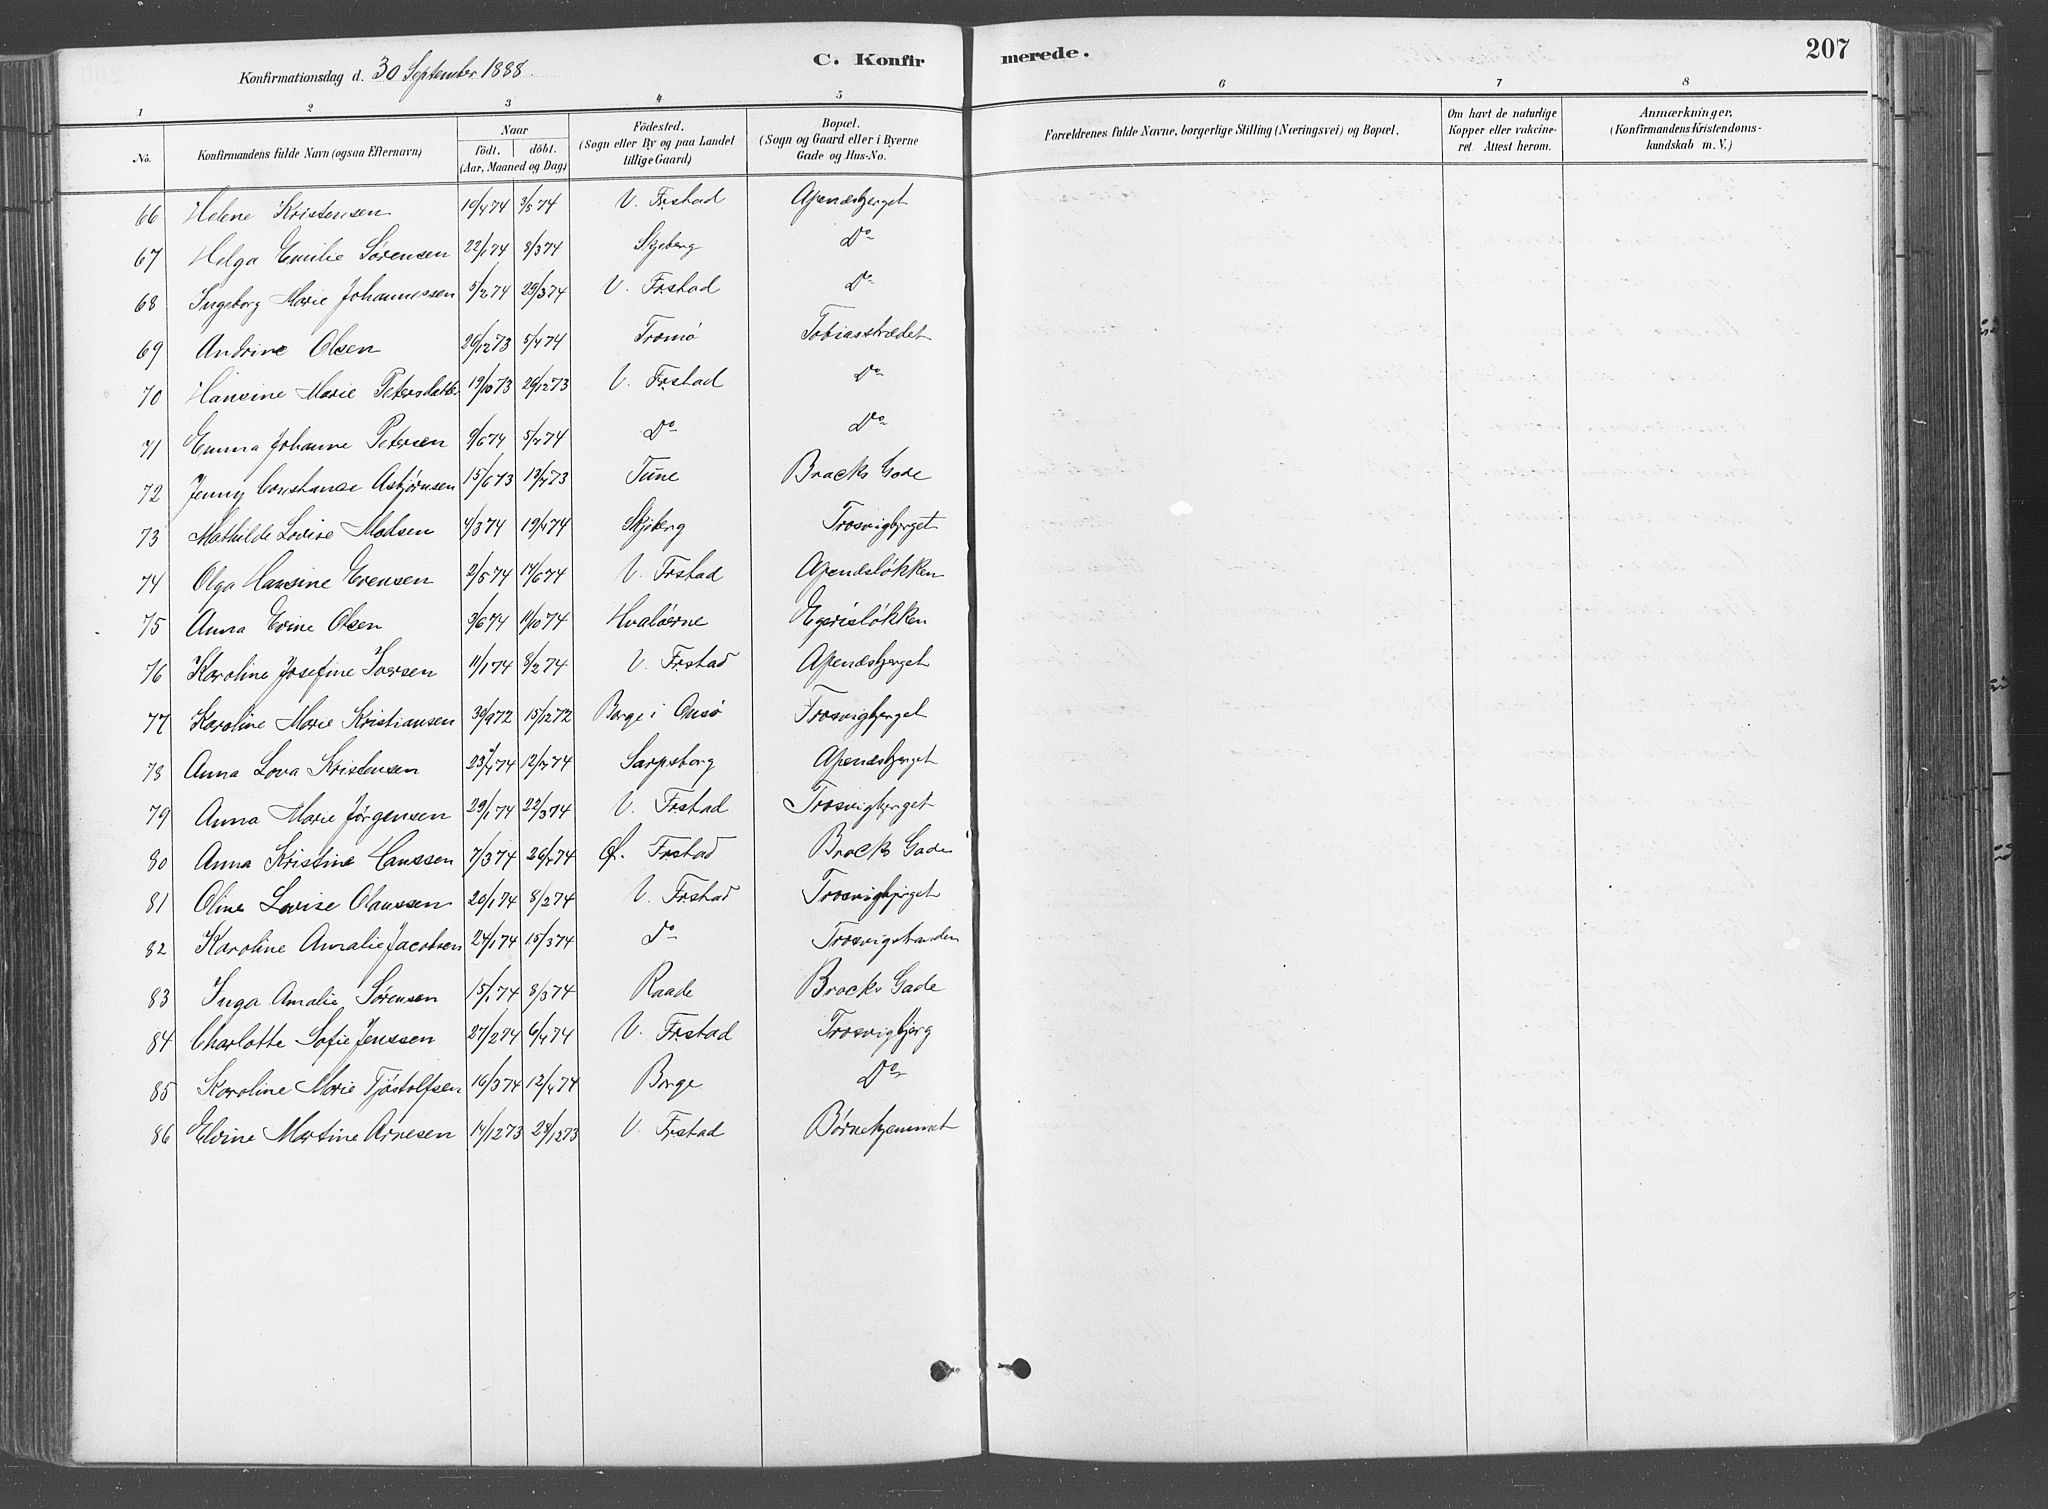 Konfirmationsdag d. 30 September 1888.
C. Konfirmerede.
207
1 2 3 4 5 6 7 8
No. Konfirmandens fulde Navn (ogsaa Efternavn) Naar födt. döbt. (Aar, Maaned og Dag) Födested. (Sogn eller By og paa Landet tillige Gaard) Bopæl. (Sogn og Gaard eller i Byerne Gade og Hus-No. Forældrenes fulde Navne, borgerlige Stilling (Næringsvei) og Bopæl. Om havt de naturlige Kopper eller vakcineret. Attest herom. Anmærkninger. (Konfirmandens Kristendomskundskab m. V.)
66 Helene Kristensen 19/4 74 3/5 74 V. Frstad Apenæsbjerget
67 Helga Emilie Sørensen 22/1 74 8/3 74 Skjeberg Do
68 Ingeborg Marie Johannessen 5/2 74 29/3 74 V. Frstad Do
69 Andrine Olsen 26/12 73 5/4 74 Tromø Tobiasstrædet
70 Hansine Marie Petersdatter 19/10 73 26/12 73 V. Frstad Do
71 Emma Johanne Petersen 9/6 74 5/7 74 Do Do
72 Jenny Constance Asbjørnsen 15/6 73 13/7 73 Tune Brocks Gade
73 Mathilde Lovise Madsen 4/3 74 19/4 74 Skjeberg Trosvigbjerget
74 Olga Hansine Evensen 2/5 74 14/6 74 V. Frstad Apenæsløkken
75 Anna Evine Olsen 3/6 74 11/10 74 Hvaløerne Egerisløkken
76 Karoline Josefine Iversen 11/1 74 8/2 74 V. Frstad Apenæsbjerget
77 Karoline Marie Kristiansen 30/9 72 15/12 72 Borge i Onsø Trosvigbjerget
78 Anna Lova Kristensen 12/4 74 Sarpsborg Apenæsbjerget
79 Anna Marie Jørgensen 29/1 74 22/3 74 V. Frstad Trosvigbjerget
80 Anna Kristine Hanssen 7/3 74 26/4 74 Ø. Frstad Brocks Gade
81 Oline Lovise Olaussen 20/1 74 8/2 74 V. Frstad Trosvigbjerget
82 Karoline Amalie Jacobsen 24/1 74 15/3 74 Do Trosvigstranden
83 Inga Amalie Sørensen 15/1 74 8/3 74 Raade Brocks Gade
84 Charlotte Sofie Jenssen 27/2 74 6/4 74 V. Frstad Trosvigbjerg
85 Karoline Marie Tjøstolfsen 16/3 74 12/4 74 Borge Do
86 Elvine Martine Arnesen 14/12 73 28/12 73 V. Frstad Børnehjemmet